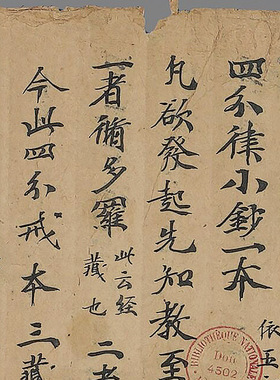 四分律小鈔一本
依五
凡欲發起先知教至
一者脩多羅 此云經藏也 二者
今此四分戒本三藏
BIBLIOTHÈQUE NATIONALE
Don
4502